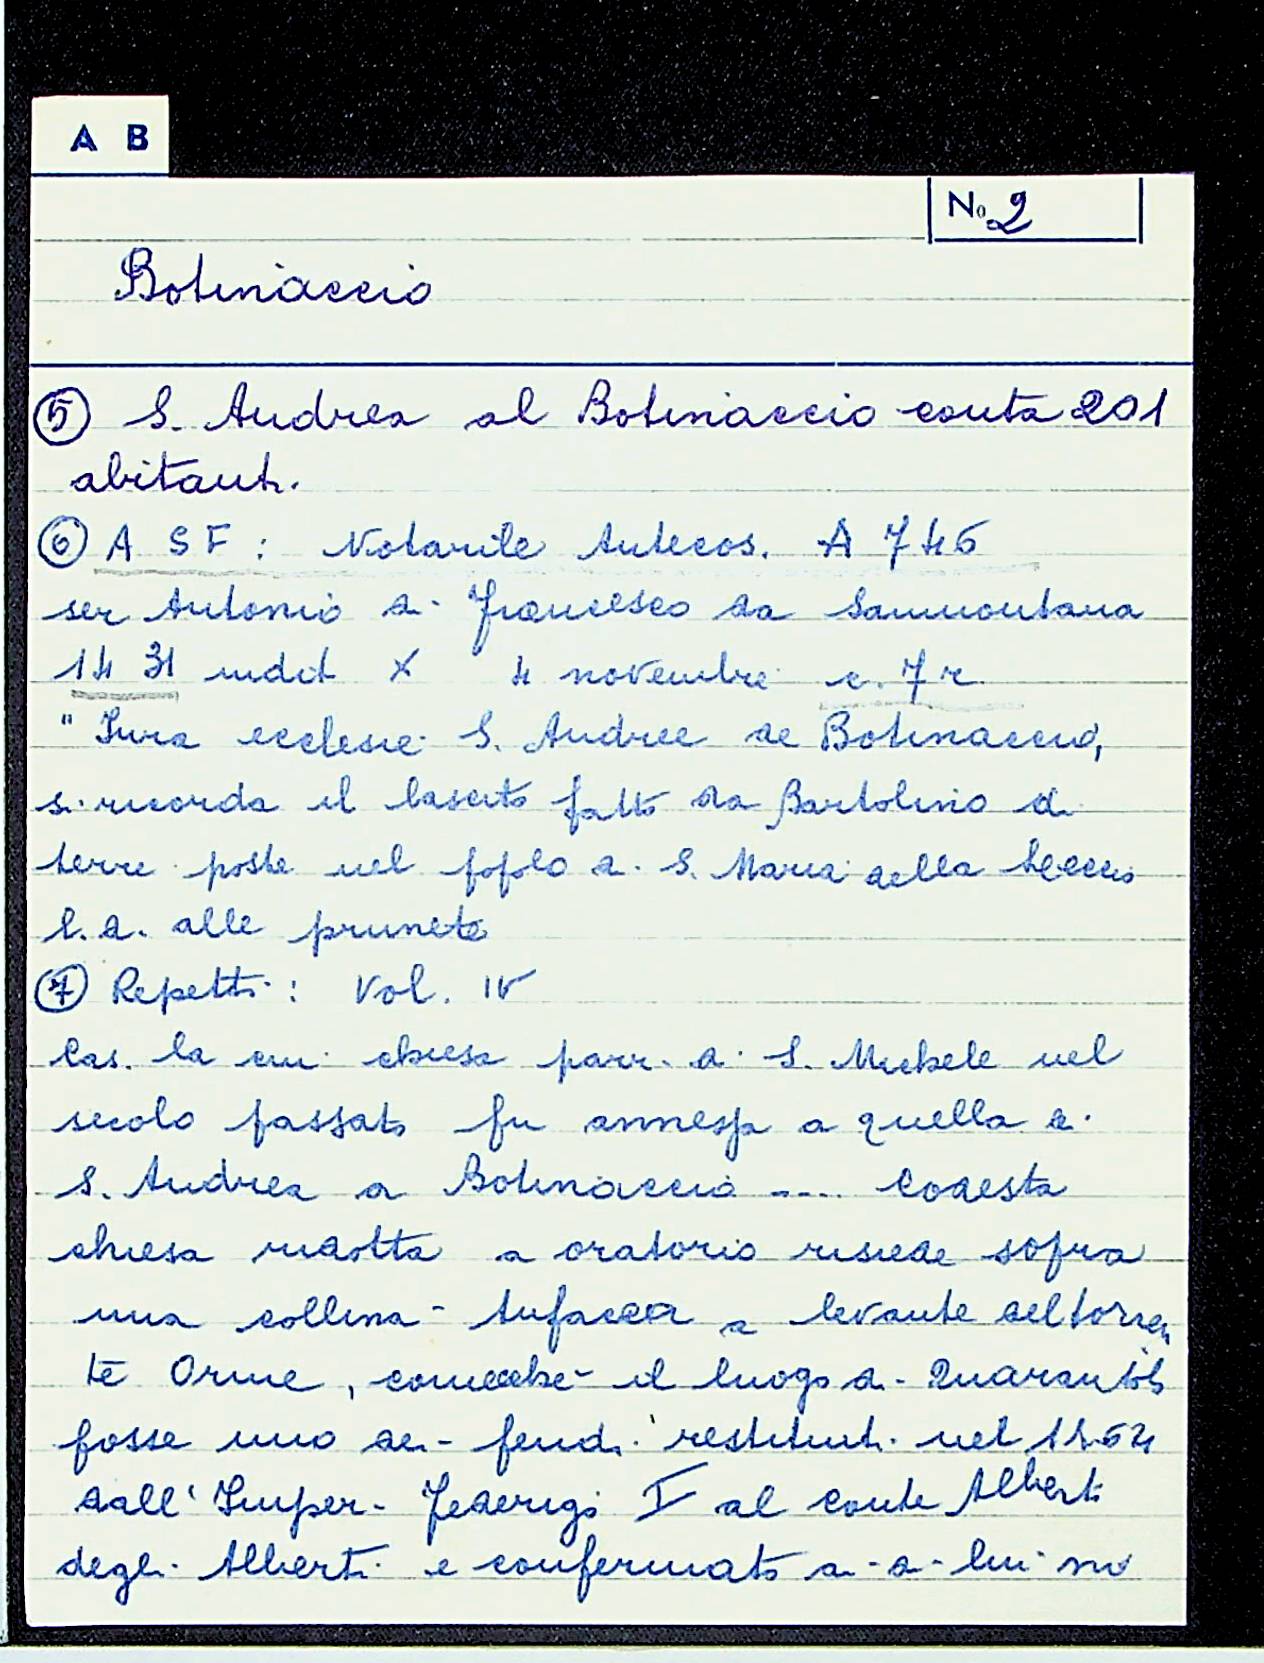 A B
No 2
Botinaccio
5 S. Andrea al Botinaccio conta 201
abitanti.
6 A S F : Notarile Antecos. A 746
ser Antonio di Francesco da Sammontana
1431 indit X 4 novembre c. 7r
"Iura ecclesie S. Andree de Botinaccio,
si ricorda il lascito fatto da Bartolino di
terre poste nel popolo di S. Maria della
l. d. alle prunete
7 Repetti : Vol. IV
Cas. la cui chiesa parr. di S. Michele nel
secolo passato fu annessa a quella di
S. Andrea a Botinaccio .... Codesta
chiesa ridotta a oratorio risiede sopra
una collina tufacea a levante del torren
te Orme, comecchè il luogo di Quarantola
fosse uno dei feudi restituiti nel 1164
dall'Imper. Federigo I al conte Alberto
degli Alberti e confermato di a lui